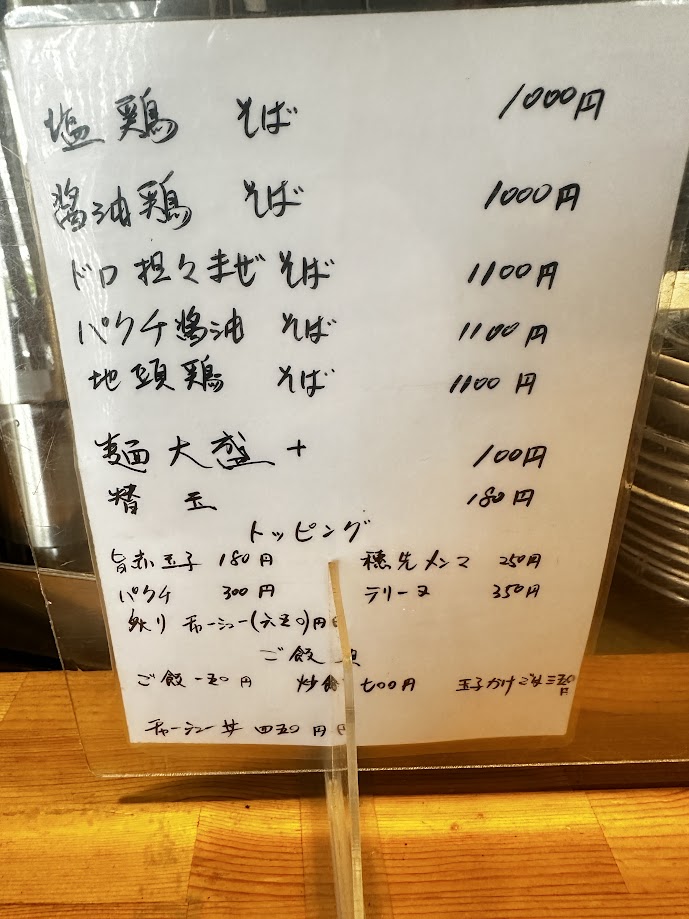 塩鶏 そば 1000円
醤油鶏 そば 1000円
ドロ担々まぜそば 1100円
パクチ醤油 そば 1100円
地頭鶏 そば 1100円
麺大盛 + 100円
替玉 180円
トッピング
旨赤玉子 180円 穂先メンマ 250円
パクチ 300円 テリーヌ 350円
炙り チャーシュー(六五〇)円
ご飯
ご飯 一五〇円 炒 七00円 玉子かけごはん三五〇円
チャーシュー丼 四五〇円